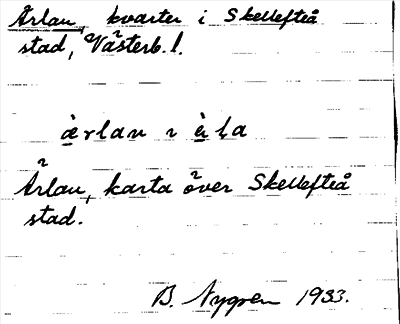 Ärlan, kvarter i Skellefteå
stad, Västerb. l.
ärlan ı
Ärlan, karta över Skellefteå
stad.
B. Nygren 1933.